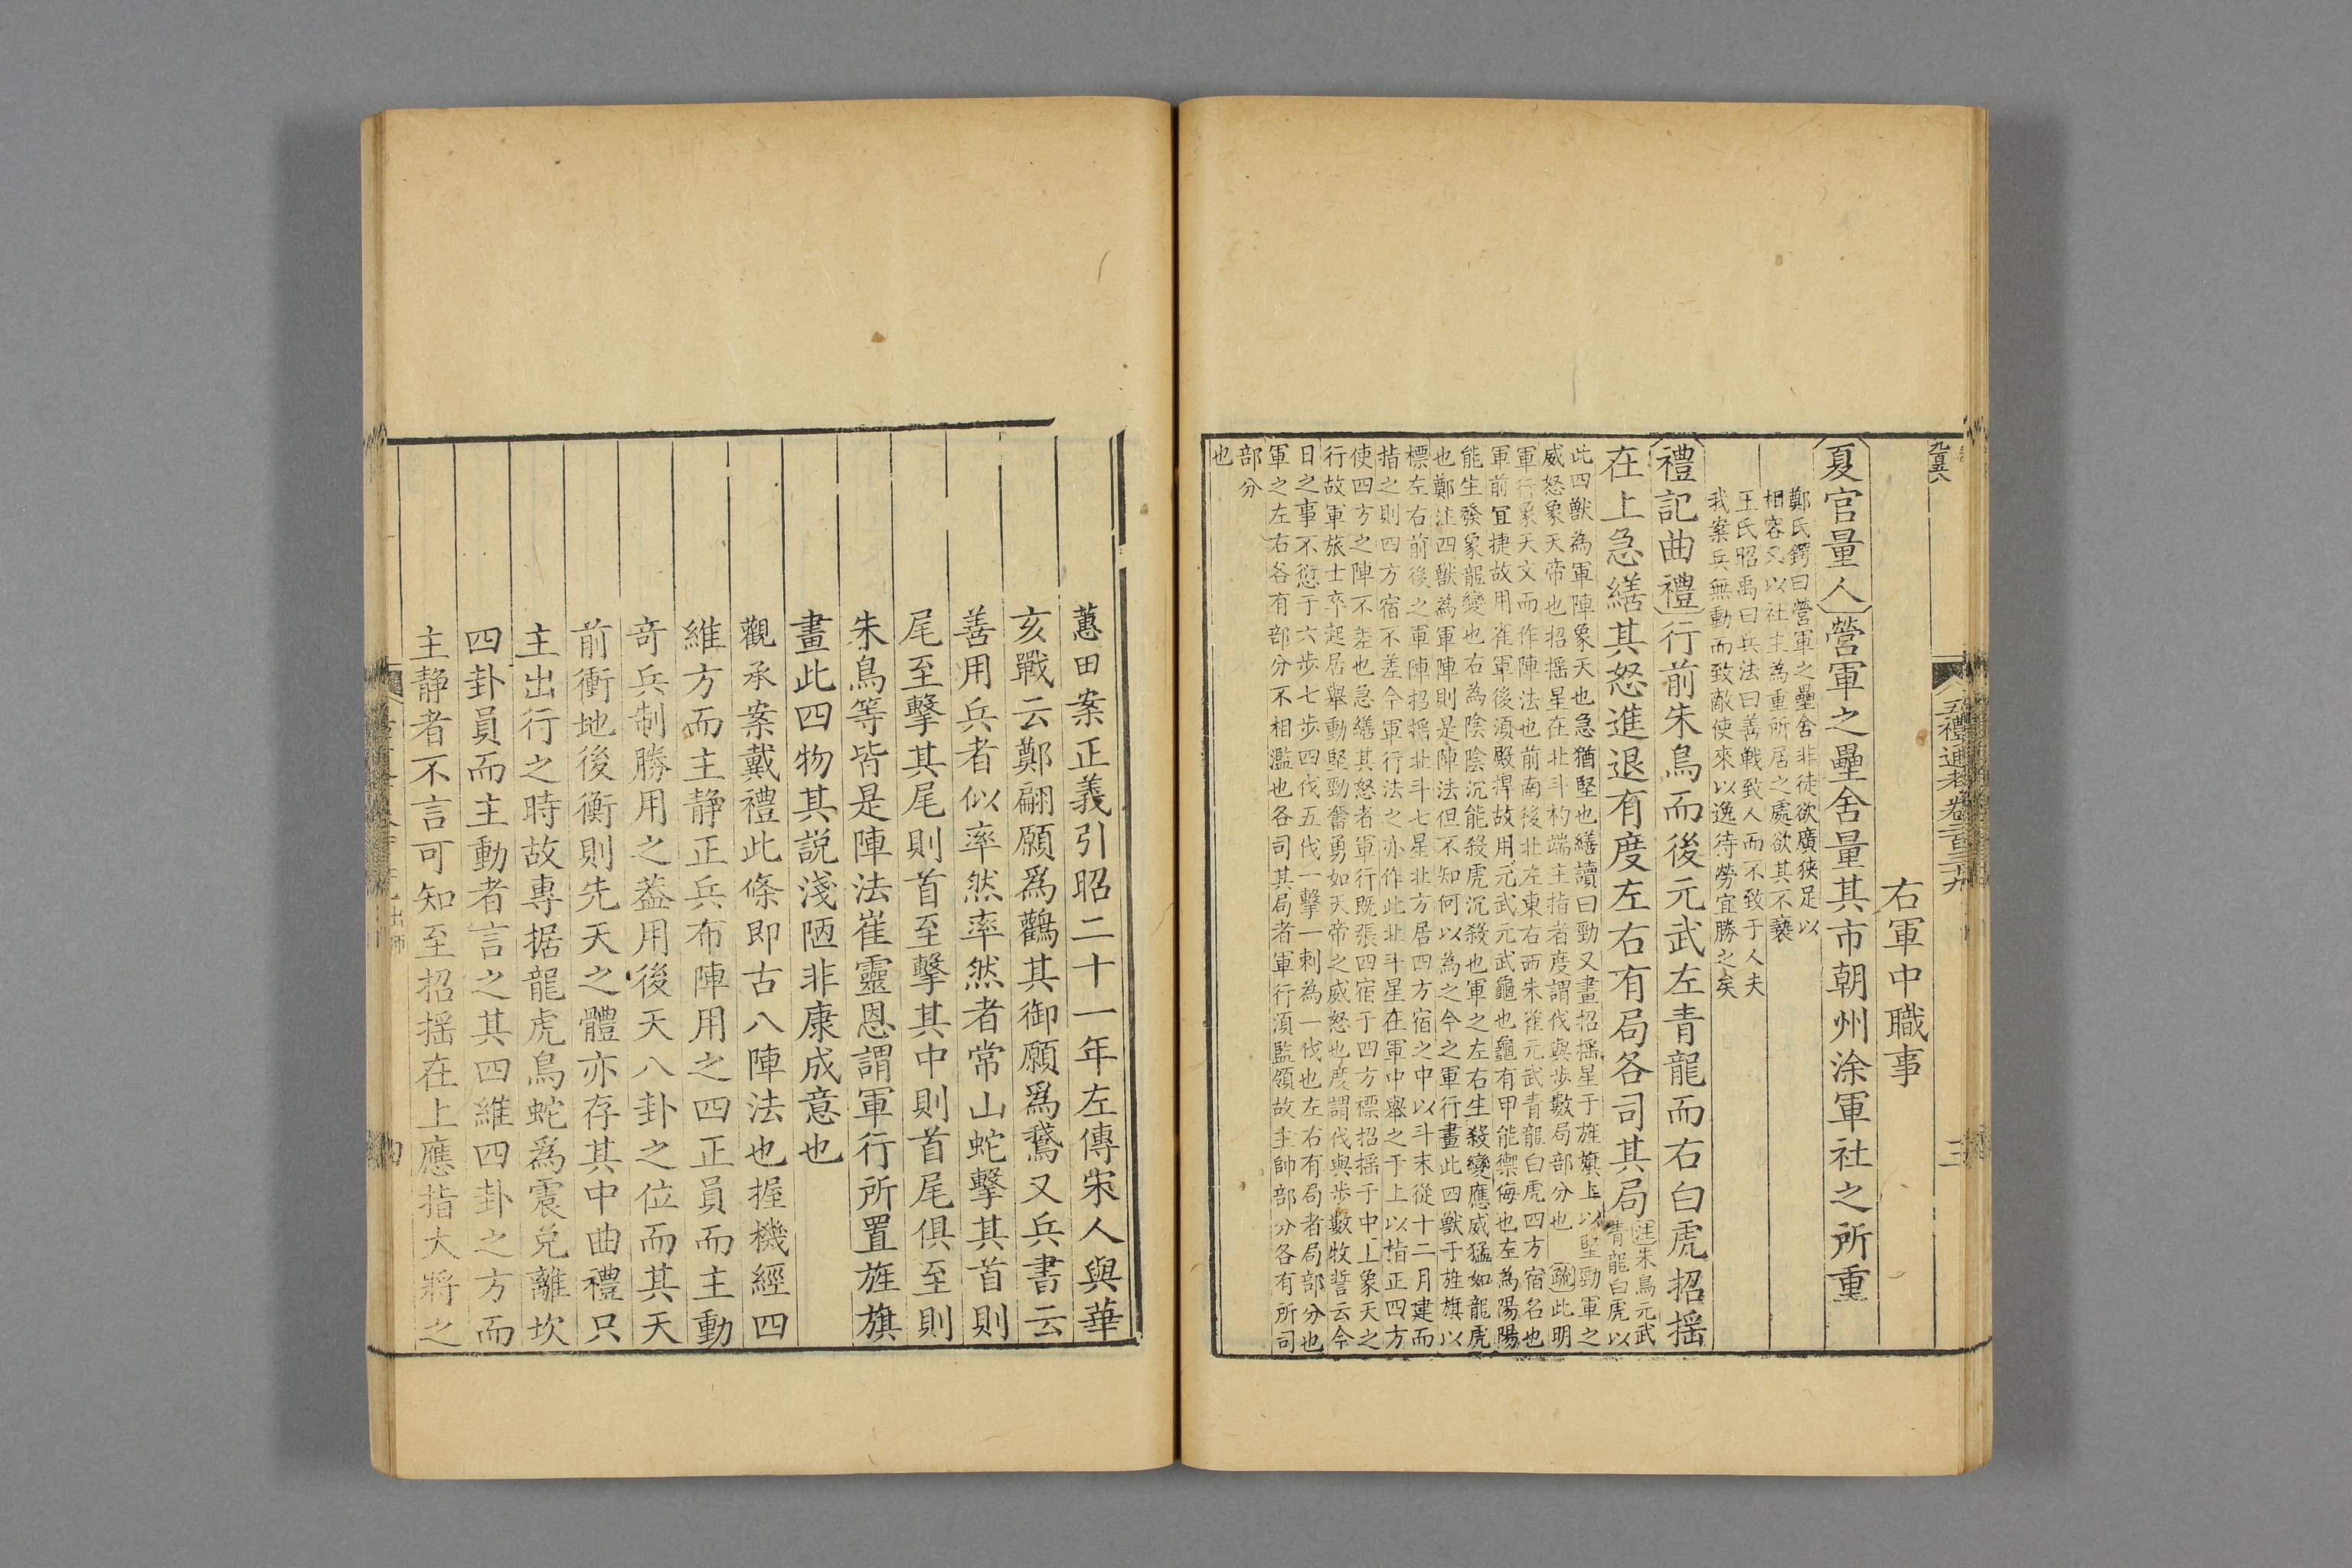 五禮通考卷二百三十九
三
右軍中職事
夏官量人營軍之壘舍量其市朝州涂軍社之所重
鄭氏鍔曰營軍之壘舍非徒欲廣狹足以
相容又以社主為重所居之處欲其不褻
王氏昭禹曰兵法曰善戰致人而不致于人夫
我案兵無動而致敵使來以逸待勞宜勝之矣
禮記曲禮行前朱鳥而後元武左青龍而右白虎招摇
在上急繕其怒進退有度左右有局各司其局
注朱鳥元武
青龍白虎以
此四獸為軍陣象天也急猶堅也繕讀曰勁又畫招摇星于旌旗上以堅勁軍之
威怒象天帝也招摇星在北斗杓端主指者度謂伐與步數局部分也 疏此明
軍行象天文而作陣法也前南後北左東右西朱雀元武青龍白虎四方宿名也
軍前宜捷故用雀軍後須殿捍故用元武元武龜也龜有甲能禦侮也左為陽陽
能生發象龍變也右為陰陰沉能殺虎沉殺也軍之左右生殺變應威猛如龍虎
也鄭注四獸為軍陣則是陣法但不知何以為之今之軍行畫此四獸于旌旗以
標左右前後之軍陣招摇北斗七星北方居四方宿之中以斗末從十二月建而
指之則四方宿不差今軍行法之亦作此北斗星在軍中舉之于上以指正四方
使四方之陣不差也急繕其怒者軍行既張四宿于四方標招摇于中上象天之
行故軍旅士卒起居舉動堅勁奮勇如天帝之威怒也度謂伐與步數牧誓云今
日之事不愆于六步七步四伐五伐一擊一刺為一伐也左右有局者局部分也
軍之左右各有部分不相濫也各司其局者軍行須監領故主帥部分各有所司
部分
也
蕙田案正義引昭二十一年左傳宋人與華
亥戰云鄭翩願爲鸛其御願爲鵞又兵書云
善用兵者似率然率然者常山蛇擊其首則
尾至擊其尾則首至擊其中則首尾俱至則
朱鳥等皆是陣法崔靈恩謂軍行所置旌旗
畫此四物其説淺陋非康成意也
觀承案戴禮此條即古八陣法也握機經四
維方而主静正兵布陣用之四正員而主動
奇兵制勝用之葢用後天八卦之位而其天
前衝地後衝則先天之體亦存其中曲禮只
主出行之時故專据龍虎鳥蛇爲震兌離坎
四卦員而主動者言之其四維四卦之方而
主静者不言可知至招摇在上應指大將之
出師
四